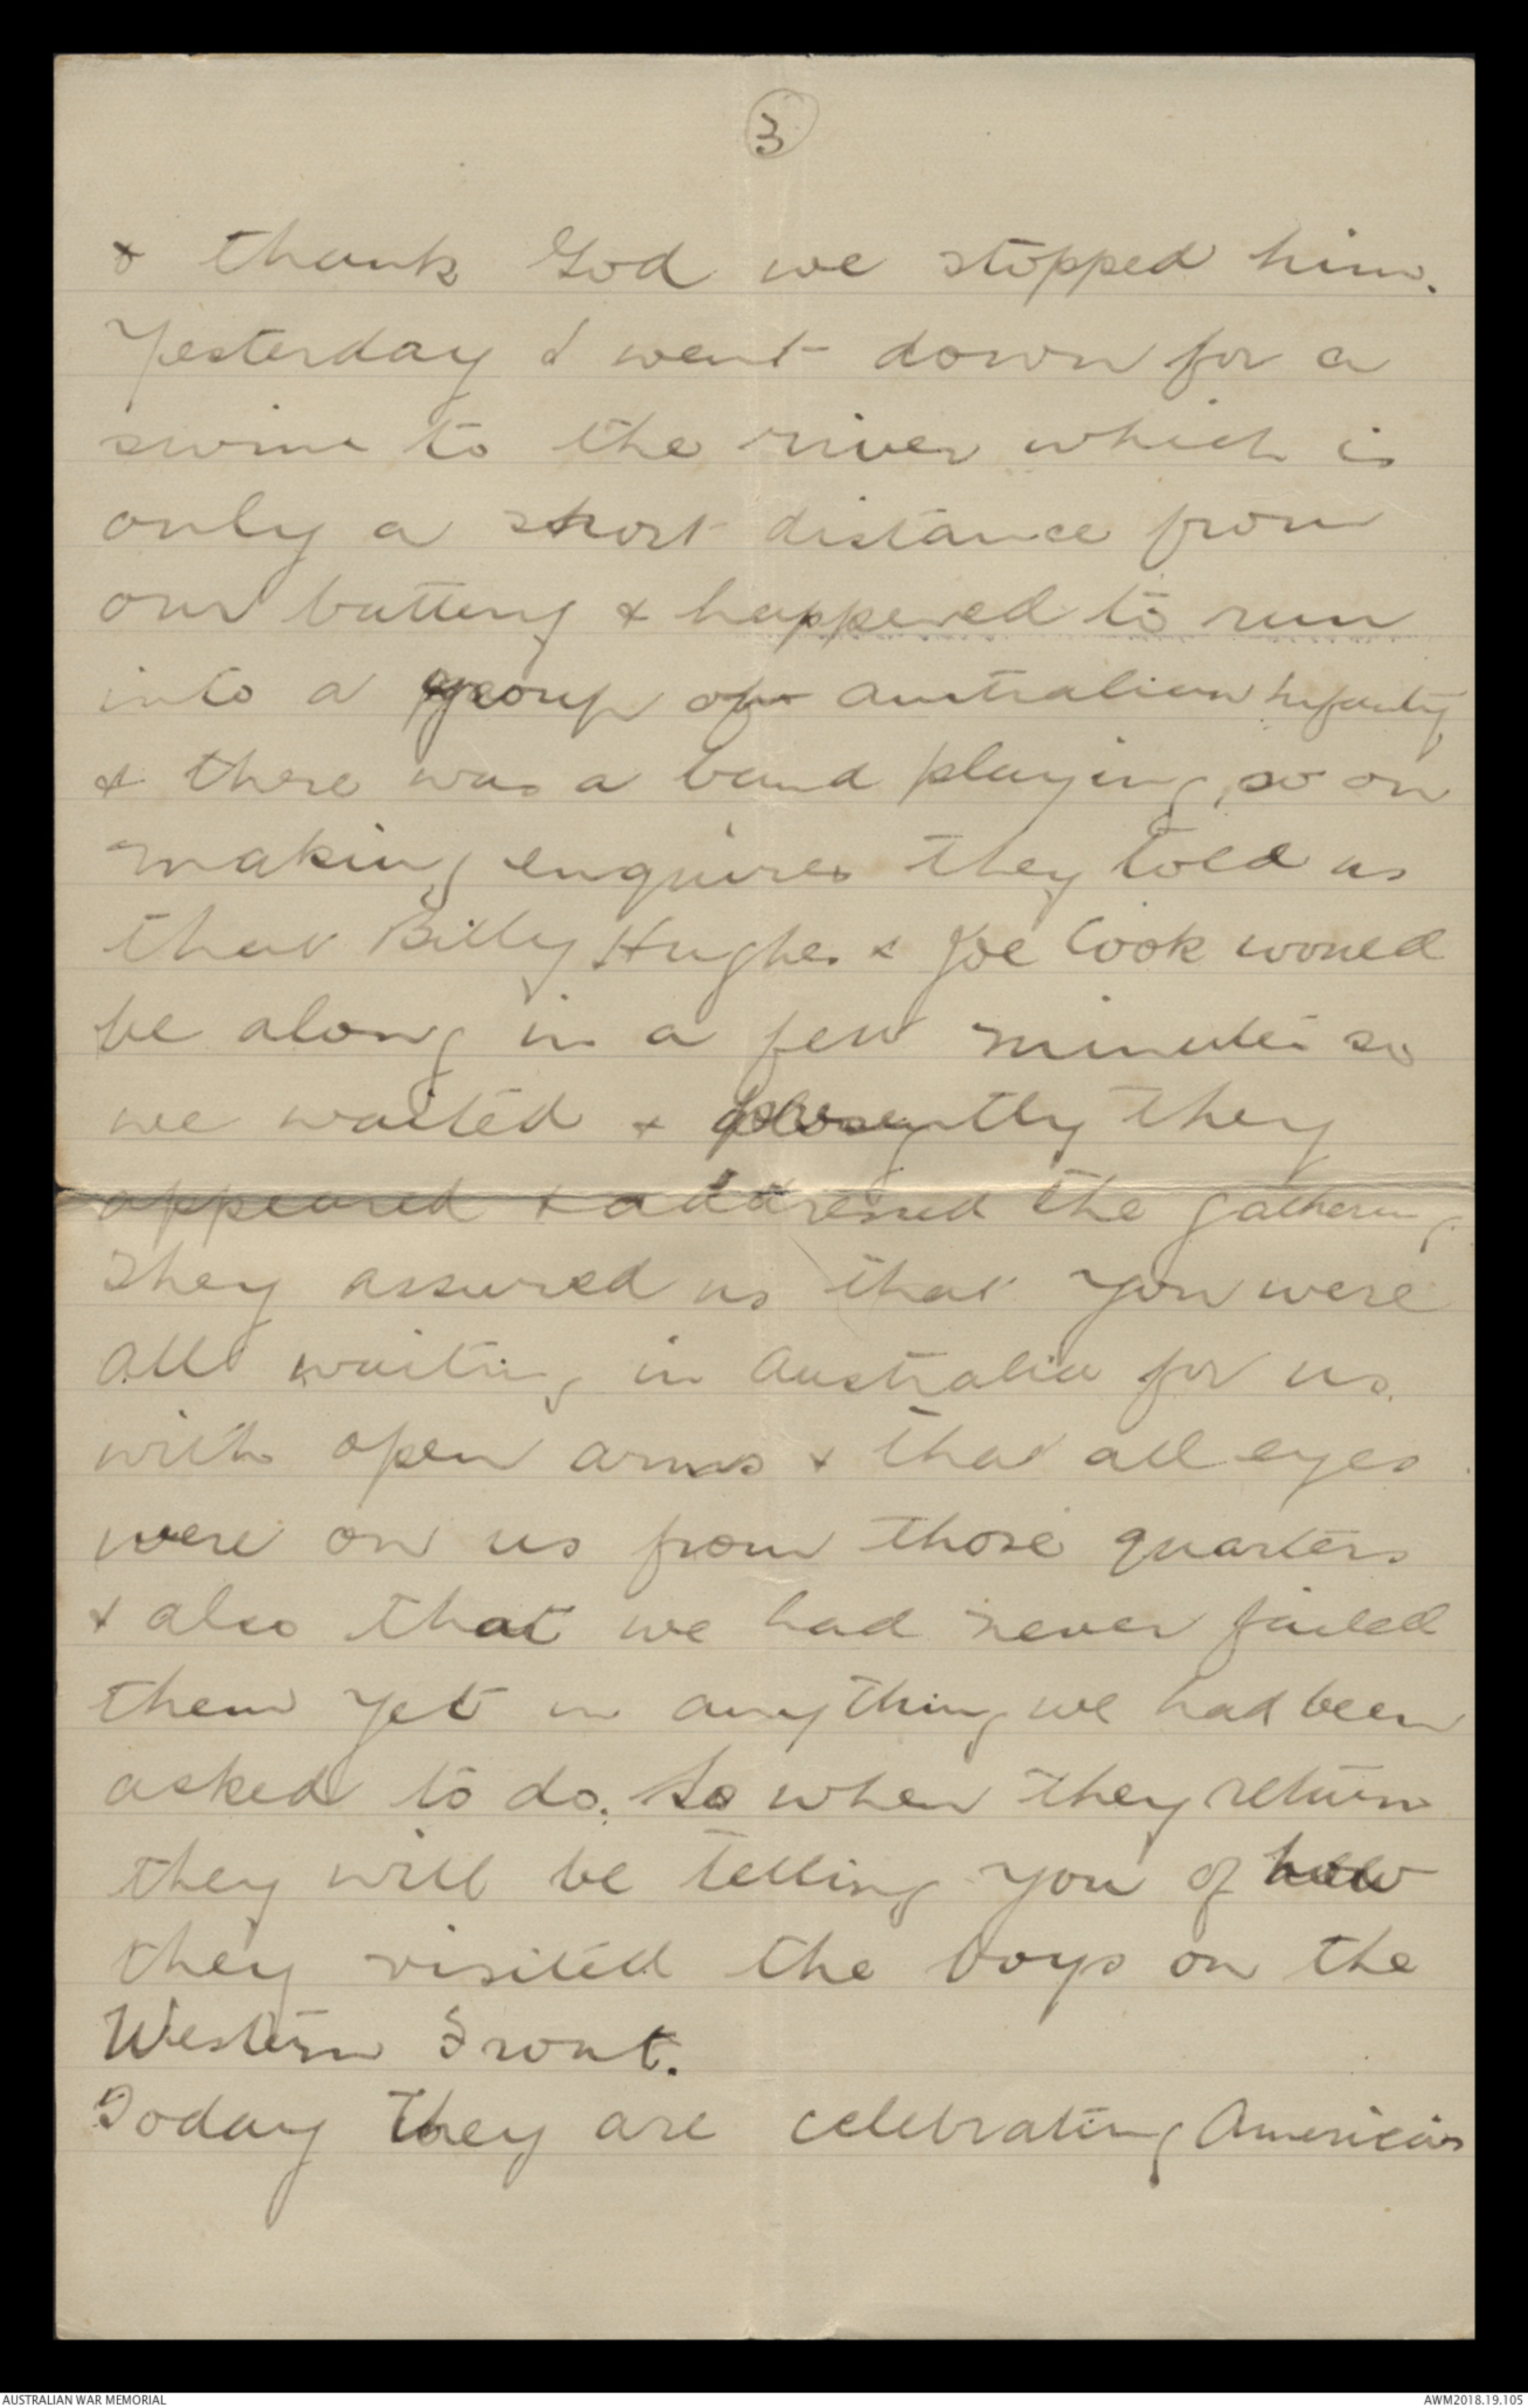 3
& thank God we stopped him.
Yesterday I went down for a
swim to the river which is
only a short distance from
our battery & happened to run
into a group of Australian Infantry
& there was a band playing, so on
making enquires they told us
that Billy Hughes & Joe Cook would
be along in a few minutes so
we waited & presently they
appeared & addressed the gathering.
They assured us that you were
all waiting in Australia for us
with open arms & that all eyes
were on us from those quarters
& also that we had never failed
them yet in anything we had been
asked to do. So when they return
they will be telling you of how
they visited the boys on the
Western Front.
Today they are celebrating America's
AUSTRALIAN WAR MEMORIAL
AWM2018.19.105